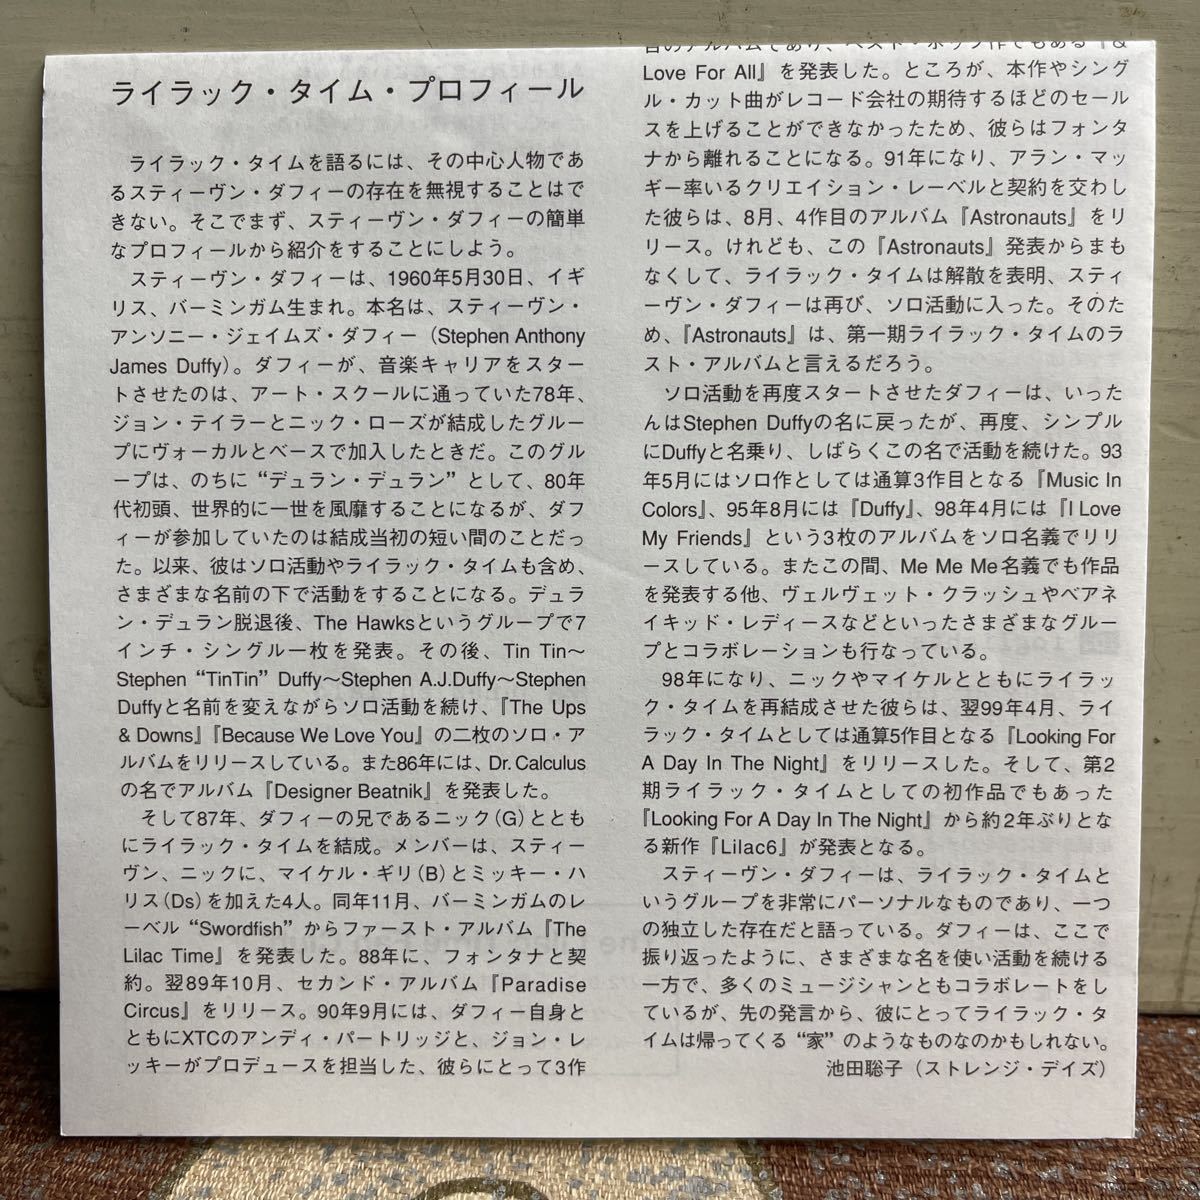 ライラック・タイム・プロフィール
ライラック・タイムを語るには、その中心人物であ
るスティーヴン・ダフィーの存在を無視することはで
きない。そこでまず、スティーヴン・ダフィーの簡単
なプロフィールから紹介をすることにしよう。
スティーヴン・ダフィーは、1960年5月30日、イギ
リス、バーミンガム生まれ。本名は、スティーヴン・
アンソニー・ジェイムズ・ダフィー（Stephen Anthony
James Duffy）。ダフィーが、音楽キャリアをスター
トさせたのは、アート・スクールに通っていた78年、
ジョン・テイラーとニック・ローズが結成したグルー
プにヴォーカルとベースで加入したときだ。このグル
ープは、のちに“デュラン・デュラン”として、80年
代初頭、世界的に一世を風靡することになるが、ダフ
ィーが参加していたのは結成当初の短い間のことだっ
た。以来、彼はソロ活動やライラック・タイムも含め、
さまざまな名前の下で活動をすることになる。デュラ
ン・デュラン脱退後、The Hawksというグループで7
インチ・シングル一枚を発表。その後、Tin Tin〜
Stephen “TinTin” Duffy〜Stephen A.J.Duffy〜Stephen
Duffyと名前を変えながらソロ活動を続け、『The Ups
& Downs』『Because We Love You』の二枚のソロ・ア
ルバムをリリースしている。また86年には、Dr. Calculus
の名でアルバム『Designer Beatnik』を発表した。
そして87年、ダフィーの兄であるニック（G）ととも
にライラック・タイムを結成。メンバーは、スティー
ヴン、ニックに、マイケル・ギリ（B）とミッキー・ハ
リス（Ds）を加えた4人。同年11月、バーミンガムのレ
ーベル“Swordfish”からファースト・アルバム『The
Lilac Time』を発表した。88年に、フォンタナと契
約。翌89年10月、セカンド・アルバム『Paradise
Circus』をリリース。90年9月には、ダフィー自身と
ともにXTCのアンディ・パートリッジと、ジョン・レ
ッキーがプロデュースを担当した、彼らにとって3作
目のアルバムであり、ベスト・ポップ作でもある『&
Love For All』を発表した。ところが、本作やシング
ル・カット曲がレコード会社の期待するほどのセール
スを上げることができなかったため、彼らはフォンタ
ナから離れることになる。91年になり、アラン・マッ
ギー率いるクリエイション・レーベルと契約を交わし
た彼らは、8月、4作目のアルバム『Astronauts』をリ
リース。けれども、この『Astronauts』発表からまも
なくして、ライラック・タイムは解散を表明、スティ
ーヴン・ダフィーは再び、ソロ活動に入った。そのた
め、『Astronauts』は、第一期ライラック・タイムのラ
スト・アルバムと言えるだろう。
ソロ活動を再度スタートさせたダフィーは、いった
んはStephen Duffyの名に戻ったが、再度、シンプル
にDuffyと名乗り、しばらくこの名で活動を続けた。93
年5月にはソロ作としては通算3作目となる『Music In
Colors』、95年8月には『Duffy』、98年4月には『I Love
My Friends』という3枚のアルバムをソロ名義でリリ
ースしている。またこの間、Me Me Me名義でも作品
を発表する他、ヴェルヴェット・クラッシュやベアネ
イキッド・レディースなどといったさまざまなグルー
プとコラボレーションも行なっている。
98年になり、ニックやマイケルとともにライラッ
ク・タイムを再結成させた彼らは、翌99年4月、ライ
ラック・タイムとしては通算5作目となる『Looking For
A Day In The Night』をリリースした。そして、第2
期ライラック・タイムとしての初作品でもあった
『Looking For A Day In The Night』から約2年ぶりとな
る新作『Lilac6』が発表となる。
スティーヴン・ダフィーは、ライラック・タイムと
いうグループを非常にパーソナルなものであり、一つ
の独立した存在だと語っている。ダフィーは、ここで
振り返ったように、さまざまな名を使い活動を続ける
一方で、多くのミュージシャンともコラボレートをし
ているが、先の発言から、彼にとってライラック・タ
イムは帰ってくる“家”のようなものなのかもしれない。
池田聡子（ストレンジ・デイズ）